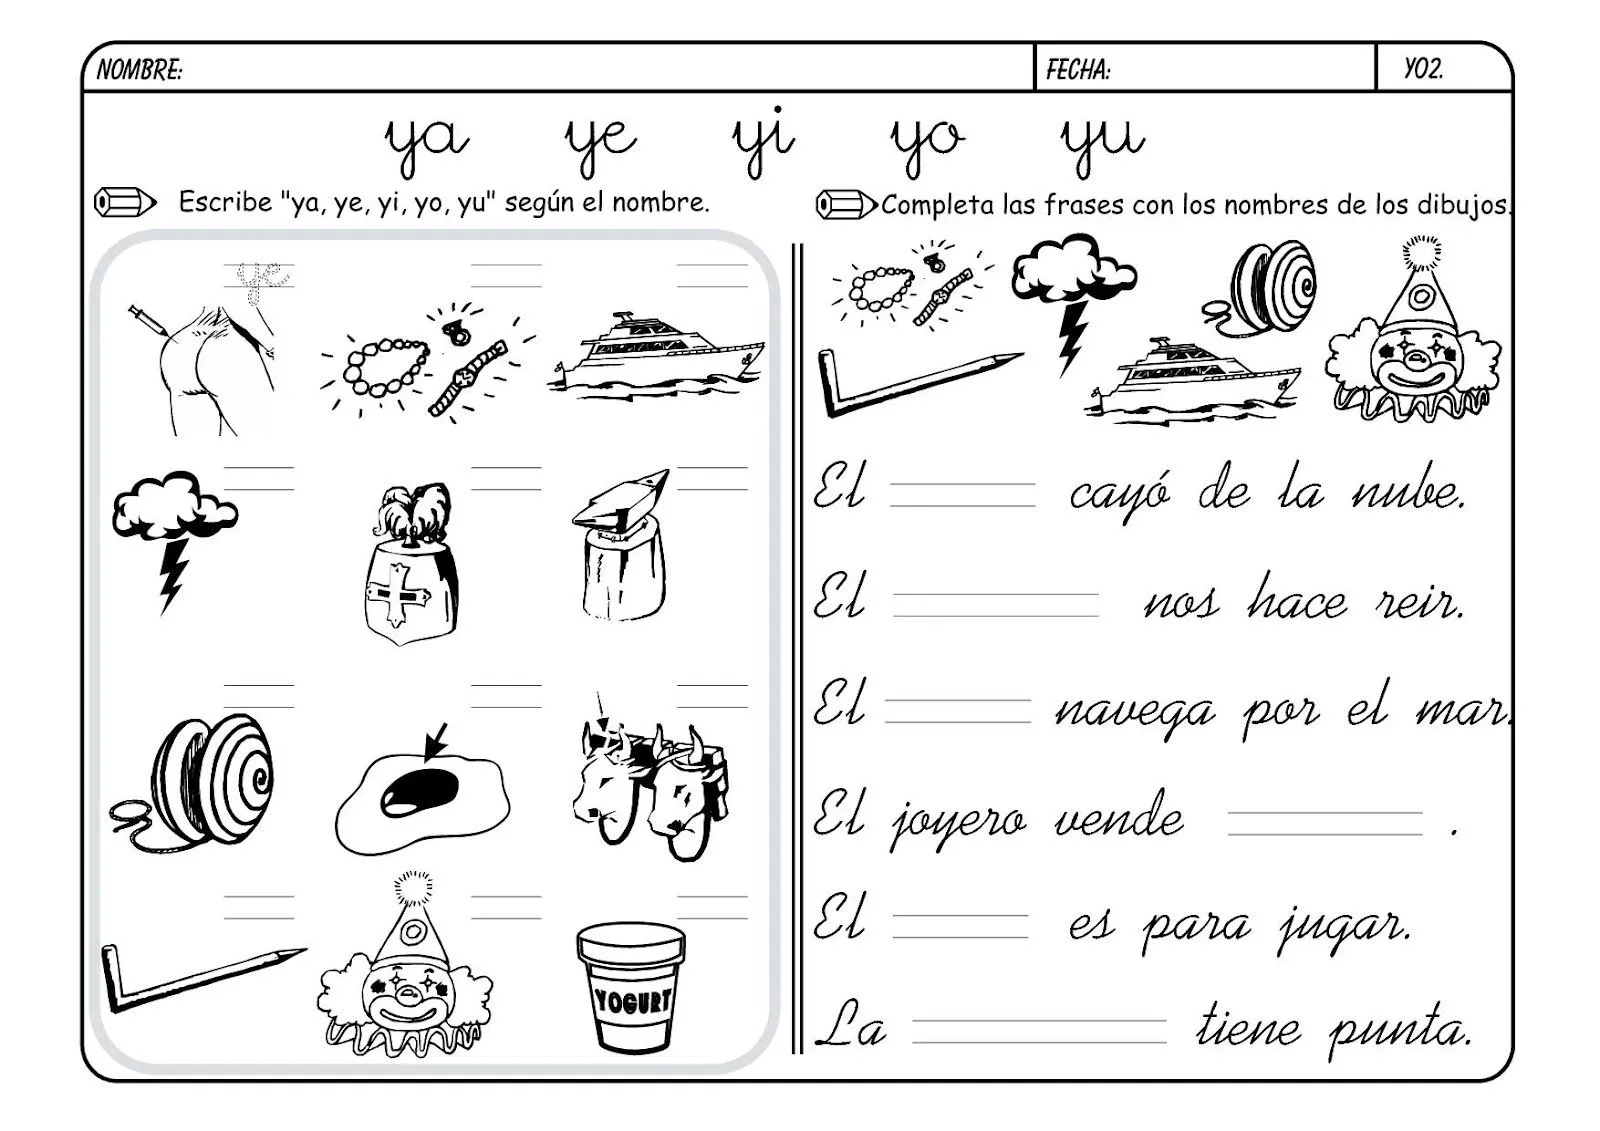 NOMBRE: FECHA: YO2.
ya ye yi yo yu
Escribe "ya, ye, yi, yo, yu" según el nombre.
ye
YOGURT
Completa las frases con los nombres de los dibujos.
El cayó de la nube.
El nos hace reir.
El navega por el mar.
El joyero vende .
El es para jugar.
La tiene punta.